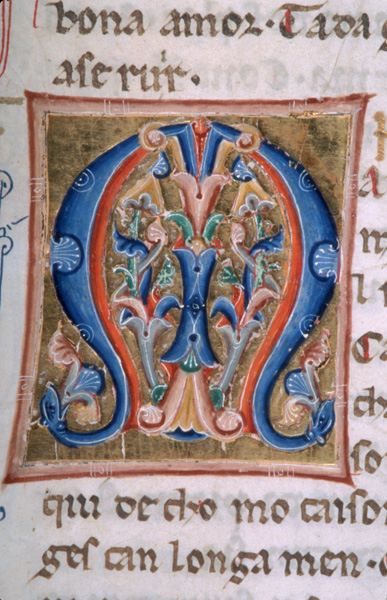 bona amor. Tada
aſe ruir.
M
a
m
l
C
ch
ſo
qui de cho mo caiſo
ges can longa men.